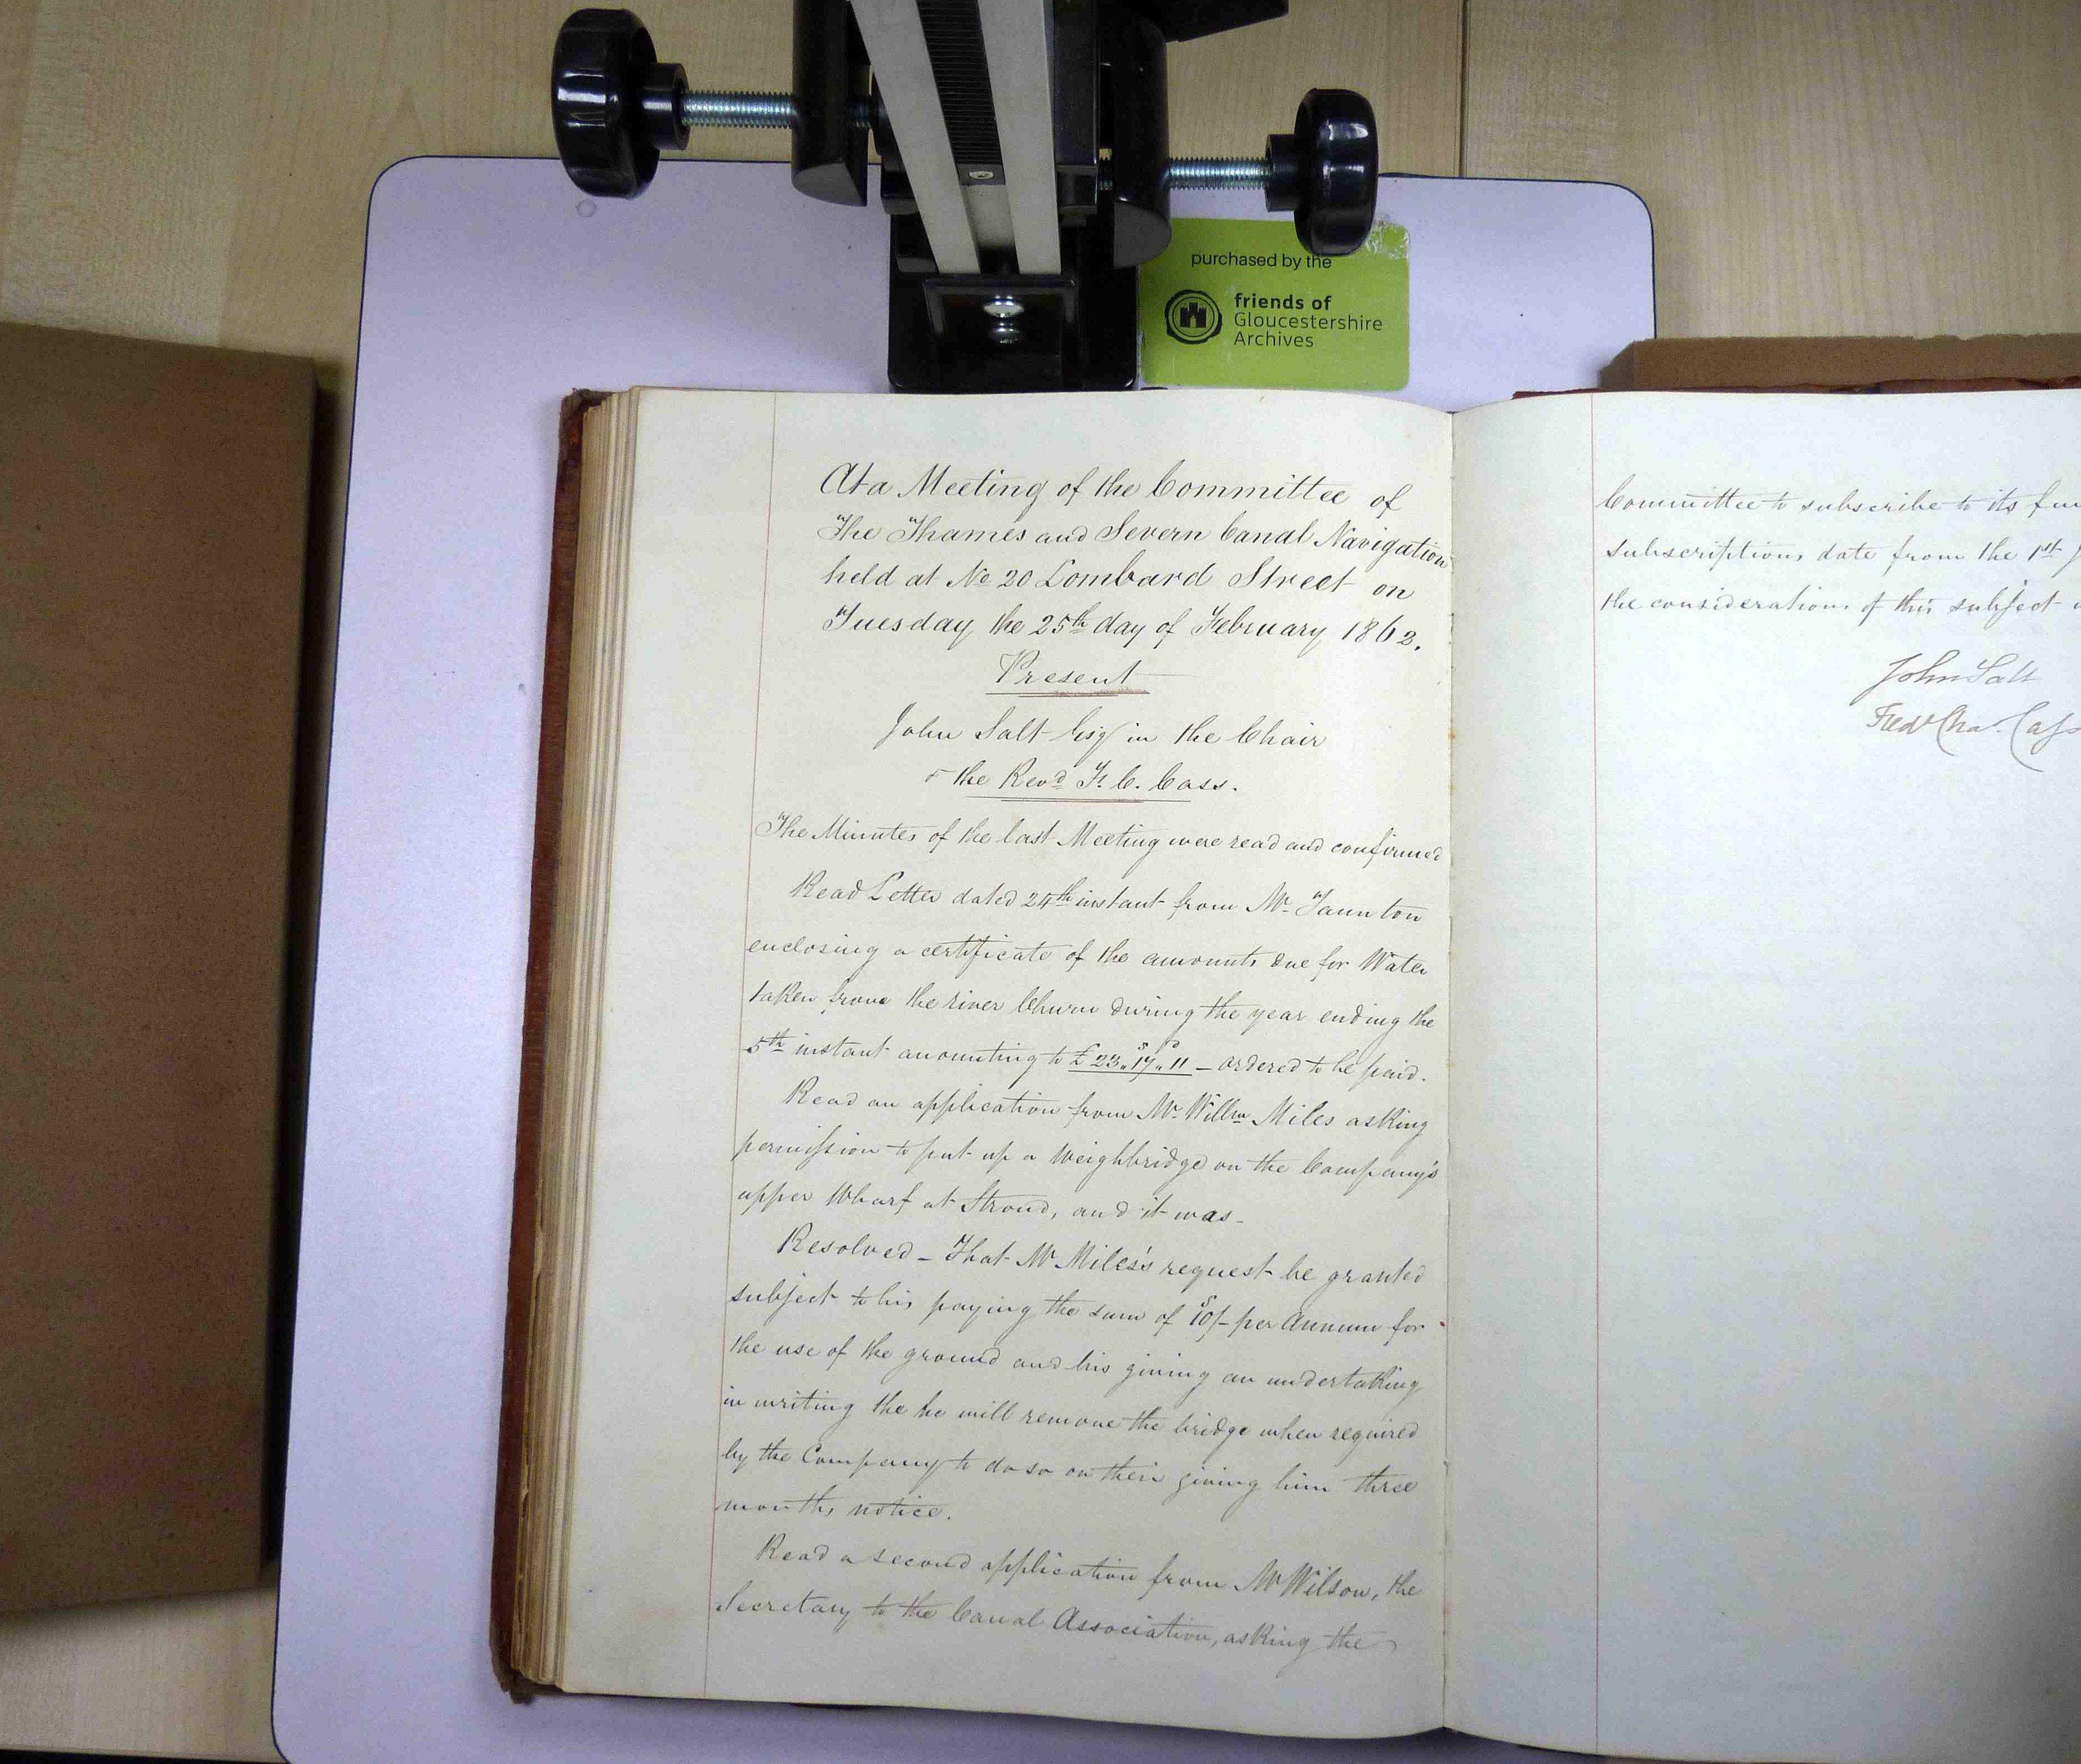 purchased by the
friends of
Gloucestershire
Archives
At a Meeting of the Committee of
The Thames and Severn Canal Navigation
held at No 20 Lombard Street on
Tuesday the 25th day of February 1862.
Present
John Salt Esq in the Chair
& the Revd F. C. Cass.
The Minutes of the last Meeting were read and confirmed
Read Letter dated 24th instant from Mr Taunton
enclosing a certificate of the amounts due for Water
taken from the river Churn during the year ending the
5th instant amounting to £23„ 17s„ 11d – ordered to be paid.
Read an application from Mr Willm Miles asking
permission to put up a Weighbridge on the Company's
upper Wharf at Stroud, and it was –
Resolved – That Mr Miles's request be granted
subject to his paying the sum of 10s/- per Annum for
the use of the ground and his giving an undertaking
in writing the he will remove the bridge when required
by the Company to do so on their giving him three
months notice.
Read a second application from Mr Wilson, the
Secretary to the Canal Association, asking the
Committee to subscribe to its
subscriptions date from the 1st
the consideration of this subject
John Salt
Fredk Cha. Cass